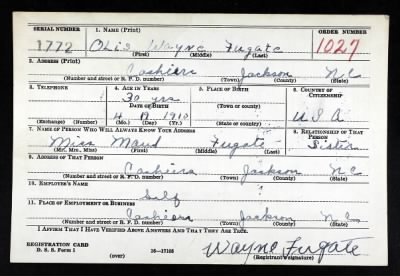 SERIAL NUMBER 1. NAME (Print) ORDER NUMBER
1772 Otis Wayne Fugate 1027
(First) (Middle) (Last)
2. ADDRESS (Print)
Cashiers Jackson N C
(Number and street or R. F. D. number) (Town) (County) (State)
3. TELEPHONE 4. AGE IN YEARS 5. PLACE OF BIRTH 6. COUNTRY OF CITIZENSHIP
30 yrs
DATE OF BIRTH (Town or county)
4 1910 U S A
(Exchange) (Number) (Mo.) (Day) (Yr.) (State or country)
7. NAME OF PERSON WHO WILL ALWAYS KNOW YOUR ADDRESS 8. RELATIONSHIP OF THAT PERSON
Miss Maud Fugate Sister
(Mr., Mrs., Miss) (First) (Middle) (Last)
9. ADDRESS OF THAT PERSON
Cashiers Jackson N C
(Number and street or R. F. D. number) (Town) (County) (State)
10. EMPLOYER'S NAME
Self
11. PLACE OF EMPLOYMENT OR BUSINESS
Cashiers Jackson N C
(Number and street or R. F. D. number) (Town) (County) (State)
I AFFIRM THAT I HAVE VERIFIED ABOVE ANSWERS AND THAT THEY ARE TRUE.
REGISTRATION CARD
D. S. S. Form 1 (over) 16—17105 Wayne Fugate
(Registrant's signature)